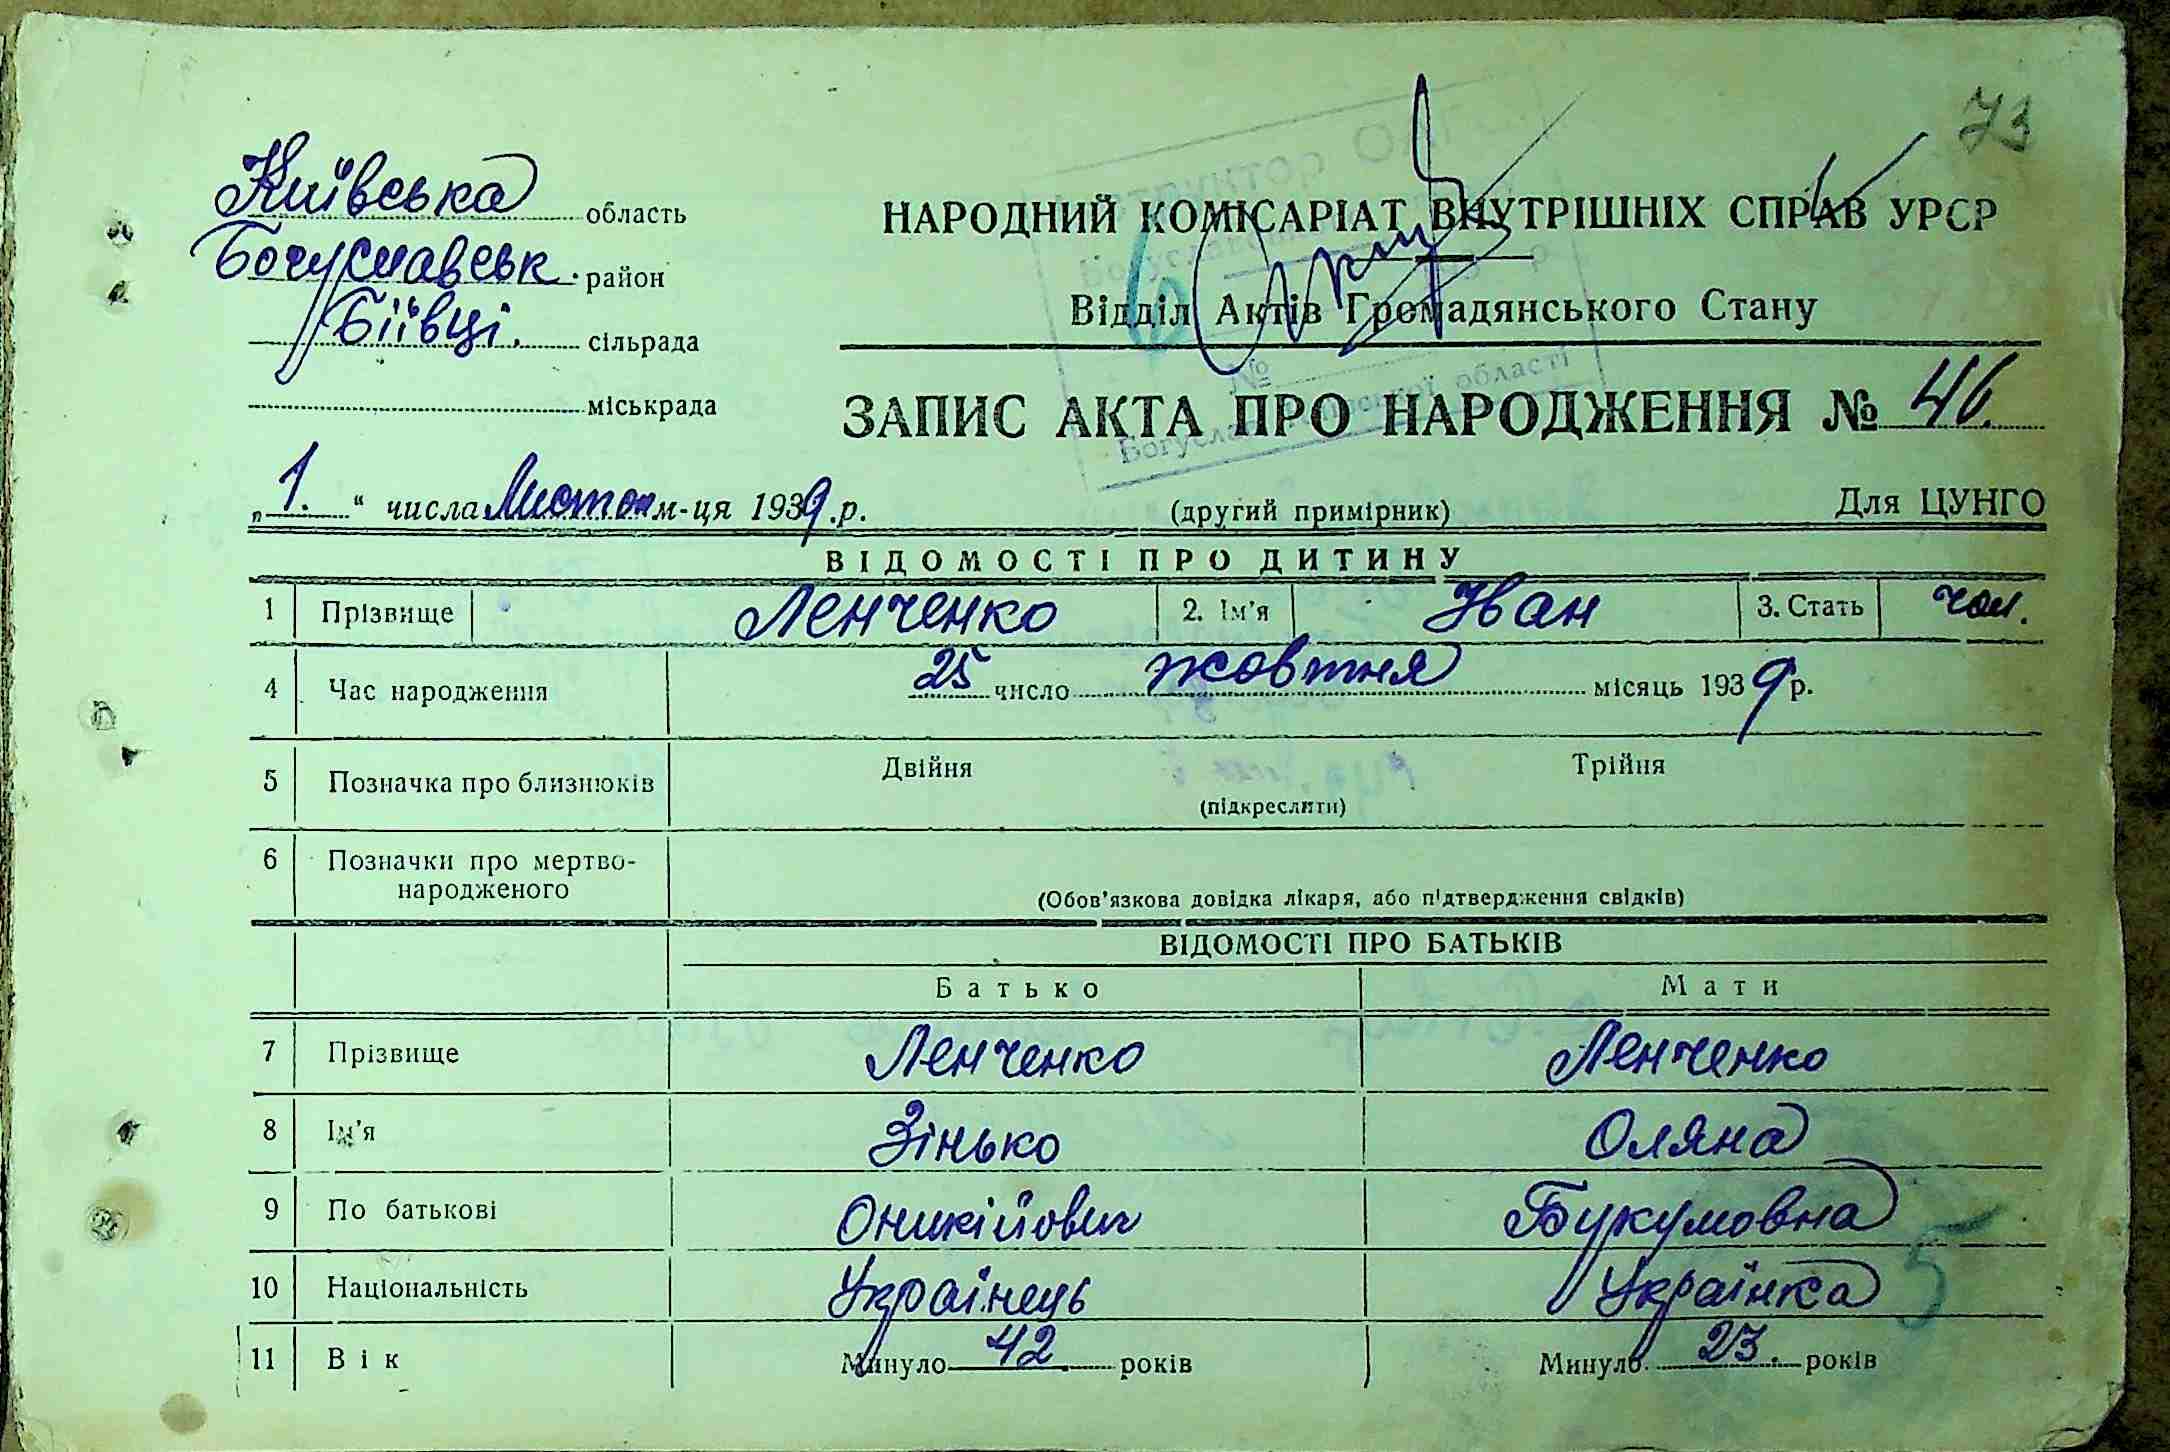 73
Київська область
НАРОДНИЙ КОМІСАРІАТ ВНУТРІШНІХ СПРАВ УРСР
Богуславськ. район
Відділ Актів Громадянського Стану
Біївці. сільрада
міськрада
ЗАПИС АКТА ПРО НАРОДЖЕННЯ № 46.
„1.“ числа Листоп м-ця 1939 р. (другий примірник) Для ЦУНГО
ВІДОМОСТІ ПРО ДИТИНУ
1 Прізвище Ленченко 2. Ім'я Іван 3. Стать чол.
4 Час народження 25 число жовтня місяць 1939 р.
5 Позначка про близнюків Двійня Трійня
(підкреслити)
6 Позначки про мертво-
народженого
(Обов'язкова довідка лікаря, або підтвердження свідків)
ВІДОМОСТІ ПРО БАТЬКІВ
Батько Мати
7 Прізвище Ленченко Ленченко
8 Ім'я Зінько Оляна
9 По батькові Оникійович Букумовна
10 Національність Українець Українка
5
11 Вік Минуло 42 років Минуло 23. років